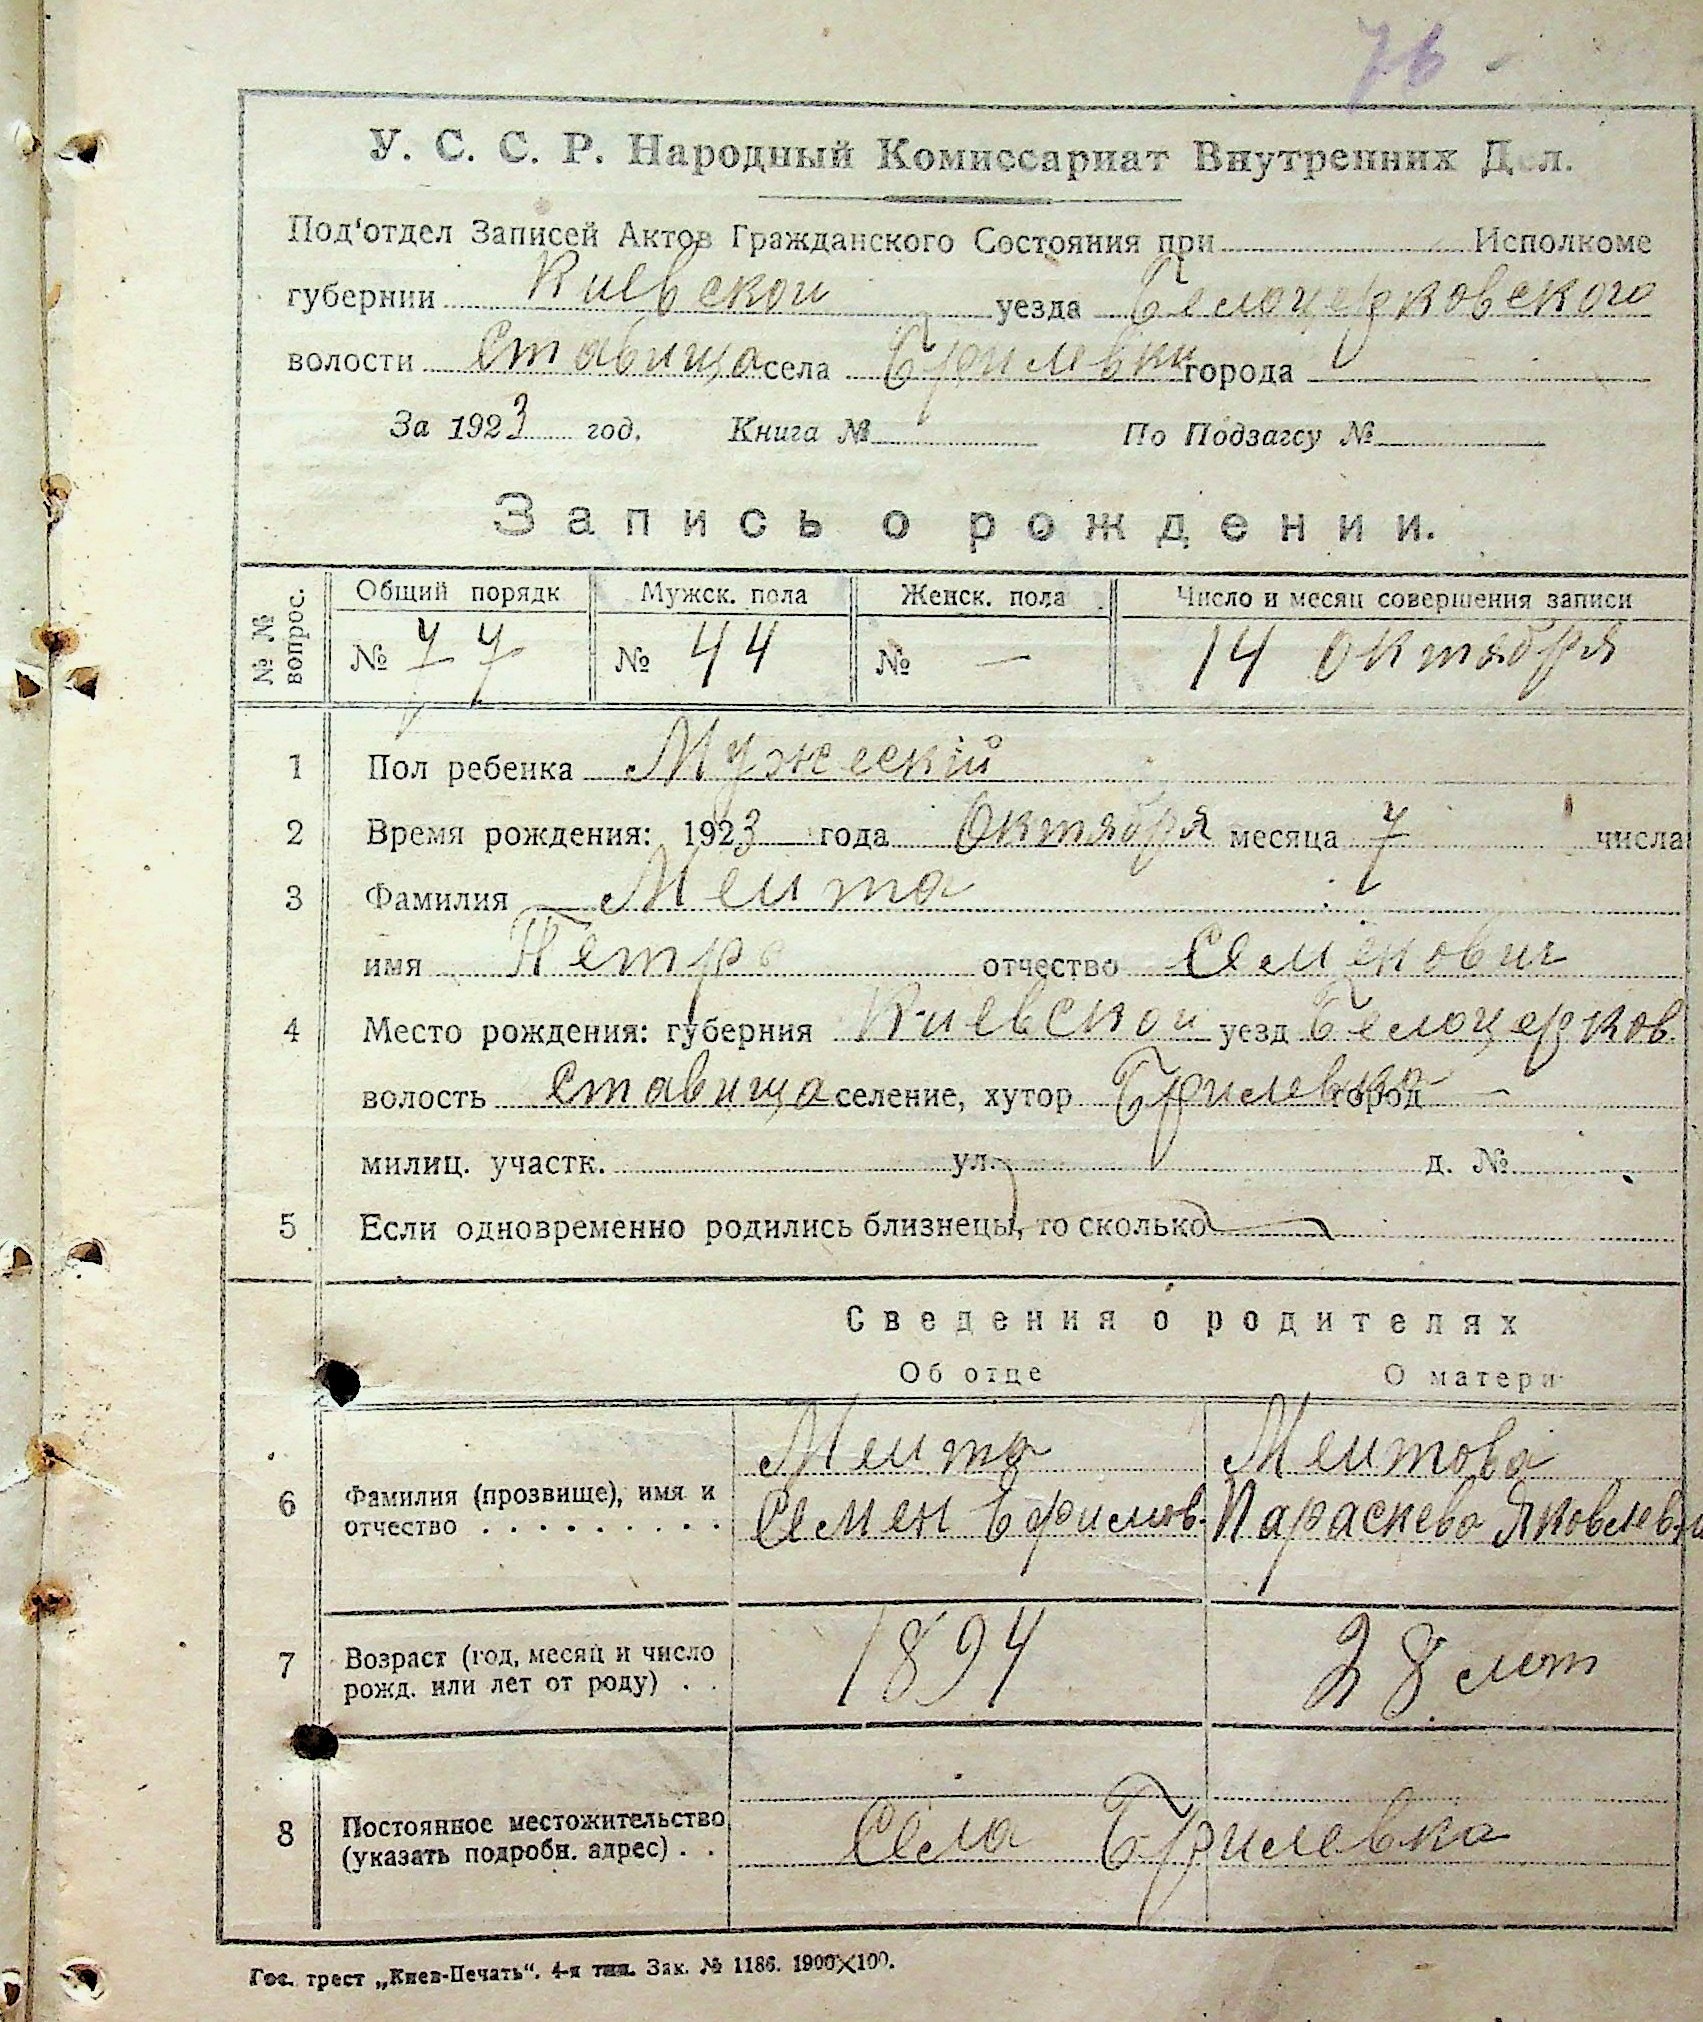 76
У. С. С. Р. Народный Комиссариат Внутренних Дел.
Под'отдел Записей Актов Гражданского Состояния при Исполкоме
губернии Киевской уезда Белоцерковского
волости Ставища села Брилевки города —
За 1923 год. Книга № По Подзагсу №
Запись о рождении.
№ № вопрос. Общий порядк Мужск. пола Женск. пола Число и месяц совершения записи
№ 77 № 44 № — 14 Октября
1 Пол ребенка Мужеский
2 Время рождения: 1923 года Октября месяца 7 числа
3 Фамилия Мельта
имя Петръ отчество Семенович
4 Место рождения: губерния Киевской уезд Белоцерков.
волость Ставища селение, хутор Брилевка город —
милиц. участк. ул. д. №
5 Если одновременно родились близнецы, то сколько —
Сведения о родителях
Об отце О матери
Мельта Мельтова
6 Фамилия (прозвище), имя и
отчество . . . . . . . . . Семен Ефимов. Параскева Яковлевна
7 Возраст (год, месяц и число
рожд. или лет от роду) . . 1894 28 лет
8 Постоянное местожительство
(указать подробн. адрес) . . Села Брилевка
Гос. трест „Киев-Печать“. 4-я тип. Зак. № 1186. 1900×100.